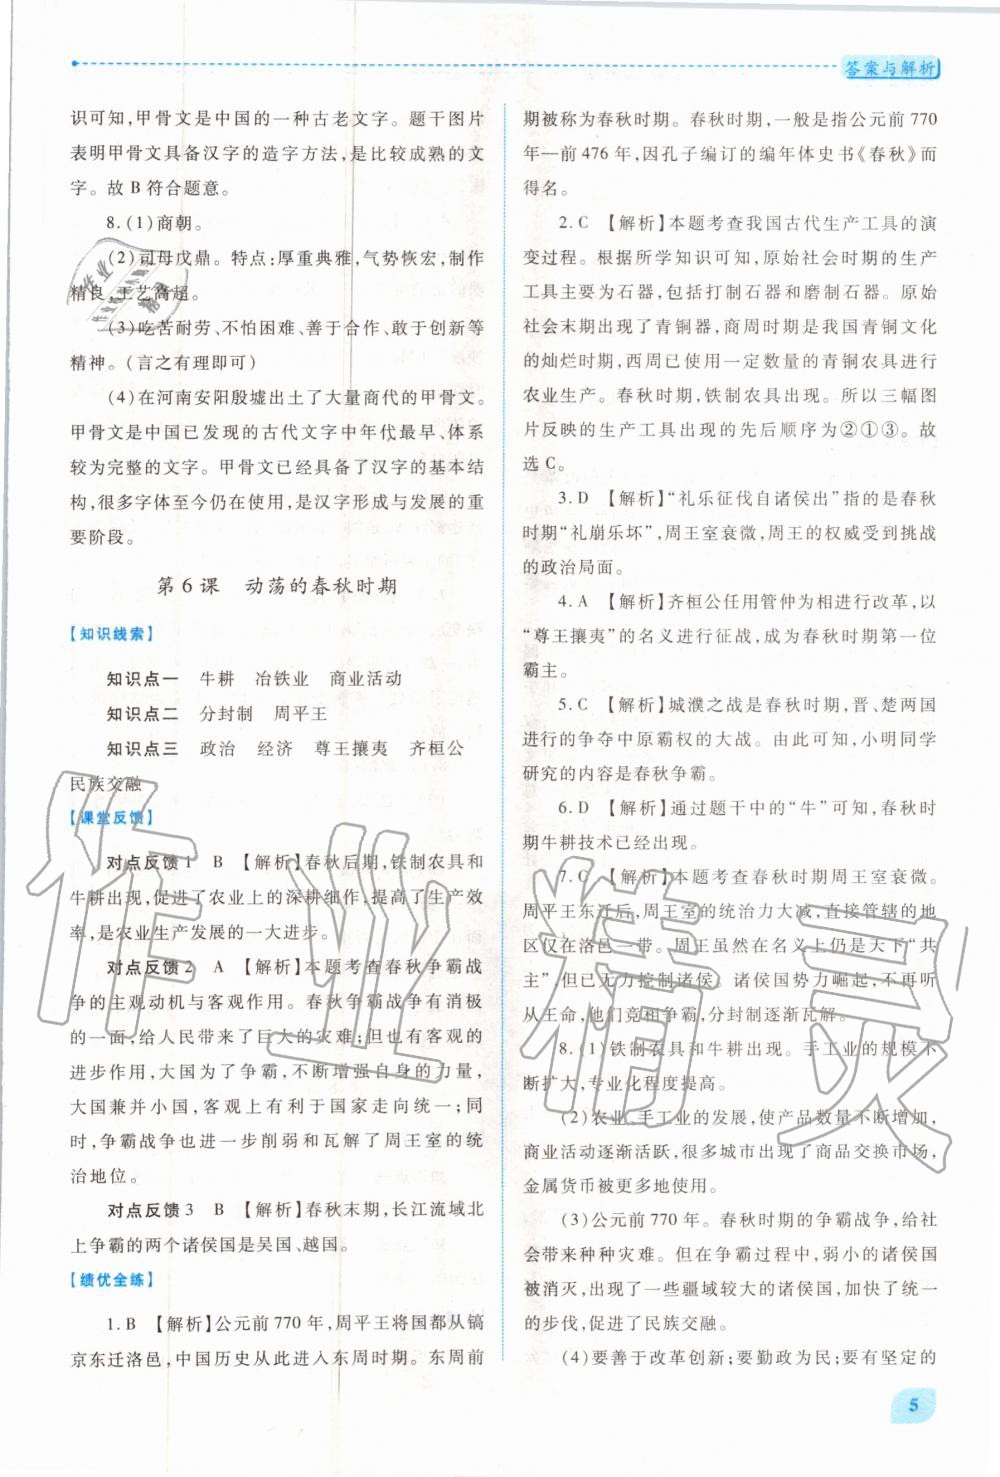 答案与解析
识可知,甲骨文是中国的一种古老文字。题干图片
表明甲骨文具备汉字的造字方法,是比较成熟的文
字。故 B 符合题意。
8.(1)商朝。
(2)司母戊鼎。特点:厚重典雅,气势恢宏,制作
精良,工艺高超。
(3)吃苦耐劳、不怕困难、善于合作、敢于创新等
精神。(言之有理即可)
(4)在河南安阳殷墟出土了大量商代的甲骨文。
甲骨文是中国已发现的古代文字中年代最早、体系
较为完整的文字。甲骨文已经具备了汉字的基本结
构,很多字体至今仍在使用,是汉字形成与发展的重
要阶段。
第 6 课 动荡的春秋时期
【知识线索】
知识点一 牛耕 冶铁业 商业活动
知识点二 分封制 周平王
知识点三 政治 经济 尊王攘夷 齐桓公
民族交融
【课堂反馈】
对点反馈 1 B 【解析】春秋后期,铁制农具和
牛耕出现,促进了农业上的深耕细作,提高了生产效
率,是农业生产发展的一大进步。
对点反馈 2 A 【解析】本题考查春秋争霸战
争的主观动机与客观作用。春秋争霸战争有消极
的一面,给人民带来了巨大的灾难;但也有客观的
进步作用,大国为了争霸,不断增强自身的力量,
大国兼并小国,客观上有利于国家走向统一;同
时,争霸战争也进一步削弱和瓦解了周王室的统
治地位。
对点反馈 3 B 【解析】春秋末期,长江流域北
上争霸的两个诸侯国是吴国、越国。
【绩优全练】
1. B 【解析】公元前 770 年,周平王将国都从镐
京东迁洛邑,中国历史从此进入东周时期。东周前
期被称为春秋时期。春秋时期,一般是指公元前 770
年—前 476 年,因孔子编订的编年体史书《春秋》而
得名。
2. C 【解析】本题考查我国古代生产工具的演
变过程。根据所学知识可知,原始社会时期的生产
工具主要为石器,包括打制石器和磨制石器。原始
社会末期出现了青铜器,商周时期是我国青铜文化
的灿烂时期,西周已使用一定数量的青铜农具进行
农业生产。春秋时期,铁制农具出现。所以三幅图
片反映的生产工具出现的先后顺序为②①③。故
选 C。
3. D 【解析】“礼乐征伐自诸侯出”指的是春秋
时期“礼崩乐坏”,周王室衰微,周王的权威受到挑战
的政治局面。
4. A 【解析】齐桓公任用管仲为相进行改革,以
“尊王攘夷”的名义进行征战,成为春秋时期第一位
霸主。
5. C 【解析】城濮之战是春秋时期,晋、楚两国
进行的争夺中原霸权的大战。由此可知,小明同学
研究的内容是春秋争霸。
6. D 【解析】通过题干中的“牛”可知,春秋时
期牛耕技术已经出现。
7. C 【解析】本题考查春秋时期周王室衰微。
周平王东迁后,周王室的统治力大减,直接管辖的地
区仅在洛邑一带。周王虽然在名义上仍是天下“共
主”,但已无力控制诸侯。诸侯国势力崛起,不再听
从王命,他们竞相争霸,分封制逐渐瓦解。
8.(1)铁制农具和牛耕出现。手工业的规模不
断扩大,专业化程度提高。
(2)农业、手工业的发展,使产品数量不断增加,
商业活动逐渐活跃,很多城市出现了商品交换市场,
金属货币被更多地使用。
(3)公元前 770 年。春秋时期的争霸战争,给社
会带来种种灾难。但在争霸过程中,弱小的诸侯国
被消灭,出现了一些疆域较大的诸侯国,加快了统一
的步伐,促进了民族交融。
(4)要善于改革创新;要勤政为民;要有坚定的
5
作业精灵